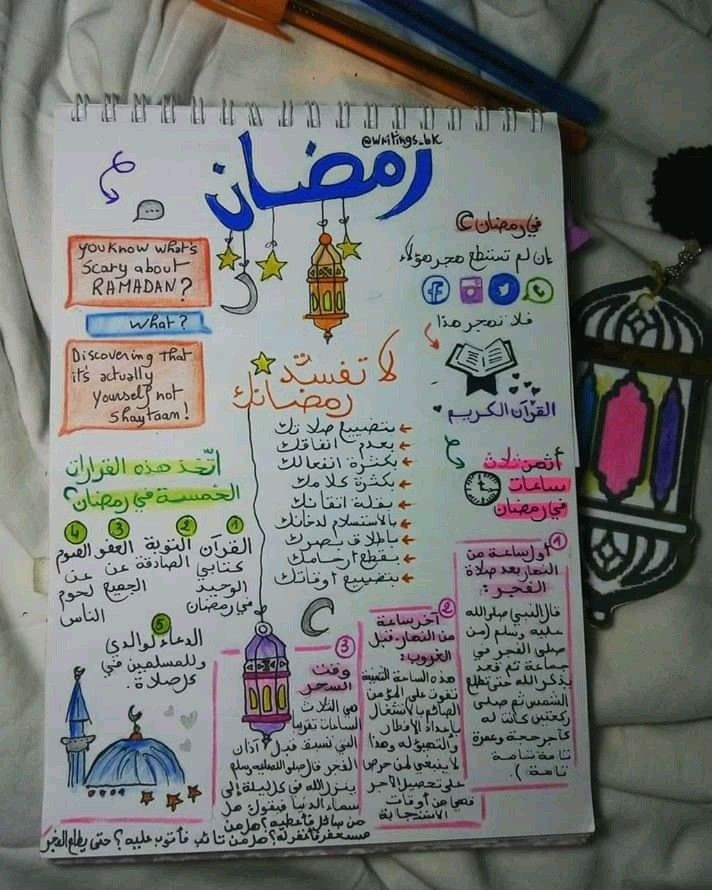 @writings_bk
رمضان
you know what's
scary about
RAMADAN?
what?
Discovering that
it's actually
yourself not
shaytaan!
في رمضان
إن لم تستطع هجر هؤلاء
فلا تهجر هذا
القرآن الكريم
لا تفسد
رمضانك
بتضييع صلاتك
بعدم انفاقك
بكثرة انفعالك
بكثرة كلامك
بقلة اتقانك
بالاستسلام لدخانك
باطلاق بصرك
بقطع ارحامك
بتضييع أوقاتك
اتخذ هذه القرارات
الخمسة في رمضان
1
القرآن
كتابي
الوحيد
في رمضان
2
التوبة
الصادقة
3
العفو
عن
الجميع
4
الصوم
عن
لحوم
الناس
5
الدعاء لوالدي
وللمسلمين في
كل صلاة.
أثمن ثلاث
ساعات
في رمضان
1
أول ساعة من
النهار بعد صلاة
الفجر:
قال النبي صلى الله
عليه وسلم (من
صلى الفجر في
جماعة ثم قعد
يذكر الله حتى تطلع
الشمس ثم صلى
ركعتين كانت له
كأجر حجة وعمرة
تامة تامة
تامة).
2
آخر ساعة
من النهار قبل
الغروب:
هذه الساعة الثمينة
تفوت على المؤمن
الصائم بالانشغال
بإعداد الافطار
والتهيؤ له وهذا
لا ينبغي لمن حرص
على تحصيل الأجر
فهي من أوقات
الاستجابة
3
وقت
السحر
هي الثلاث
الساعات تقريبا
التي تسبق قبل آذان
الفجر قال صلى الله عليه وسلم
ينزل الله في كل ليلة إلى
سماء الدنيا فيقول هل
من سائل فأعطيه؟ هل من
مستغفر فأغفر له؟ هل من تائب فأتوب عليه؟ حتى يطلع الفجر